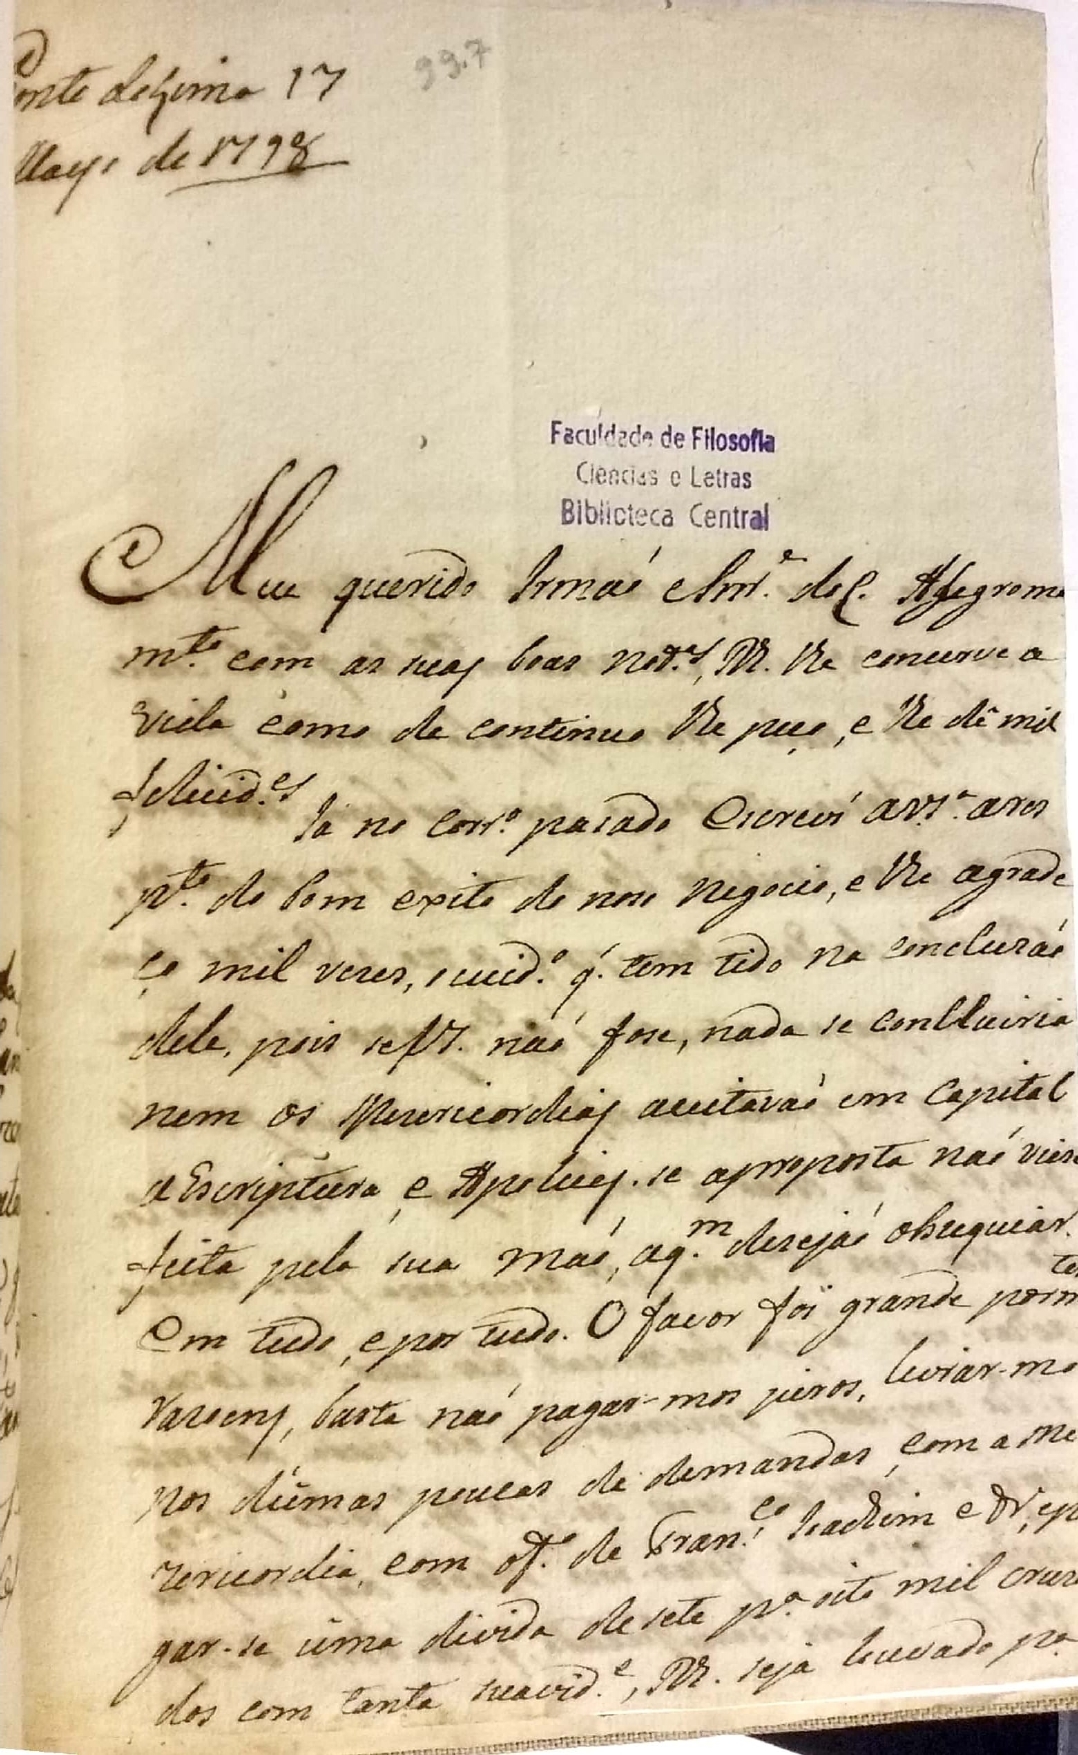 Ponte deLima 17
Mayo de 1798
99.7
Faculdade de Filosofia
Ciencias e Letras
Biblioteca Central
Meu querido Irmaó e Snr.e do C. Alegrome
m.to com as suas boas not.as, D.s lhe concerve a
vida como de continuo lhe peço, e lhe dê mil
felicid.es
Ja no Corr.o pasado Escreví a V.S.a a res
p.to do bom exito do noso negocio, e lhe agrade
ço mil vezes, o cuid.o q́. tem tido na concluzaó
dele, pois se V.S. naó fose, nada se conlluiria
nem os Mizericordias aceitavaó em Capital
a Escriptura, e Apolices. se a proposta naó viese
feita pela sua maó, a q.m dezejaó obsequiar
Em tudo, e por tudo. O favor foi grande por m.tas
razoens, basta naó pagar-mos juros, livrar-mo
nos dúmas poucas de demandas, com a Me
zericordia, com o f.o de Fran.co Joachim e Dr., e pa
gar-se úma divida de sete p.a oito mil cruza
dos com tanta suavid.e, D.s. seja louvado p.a